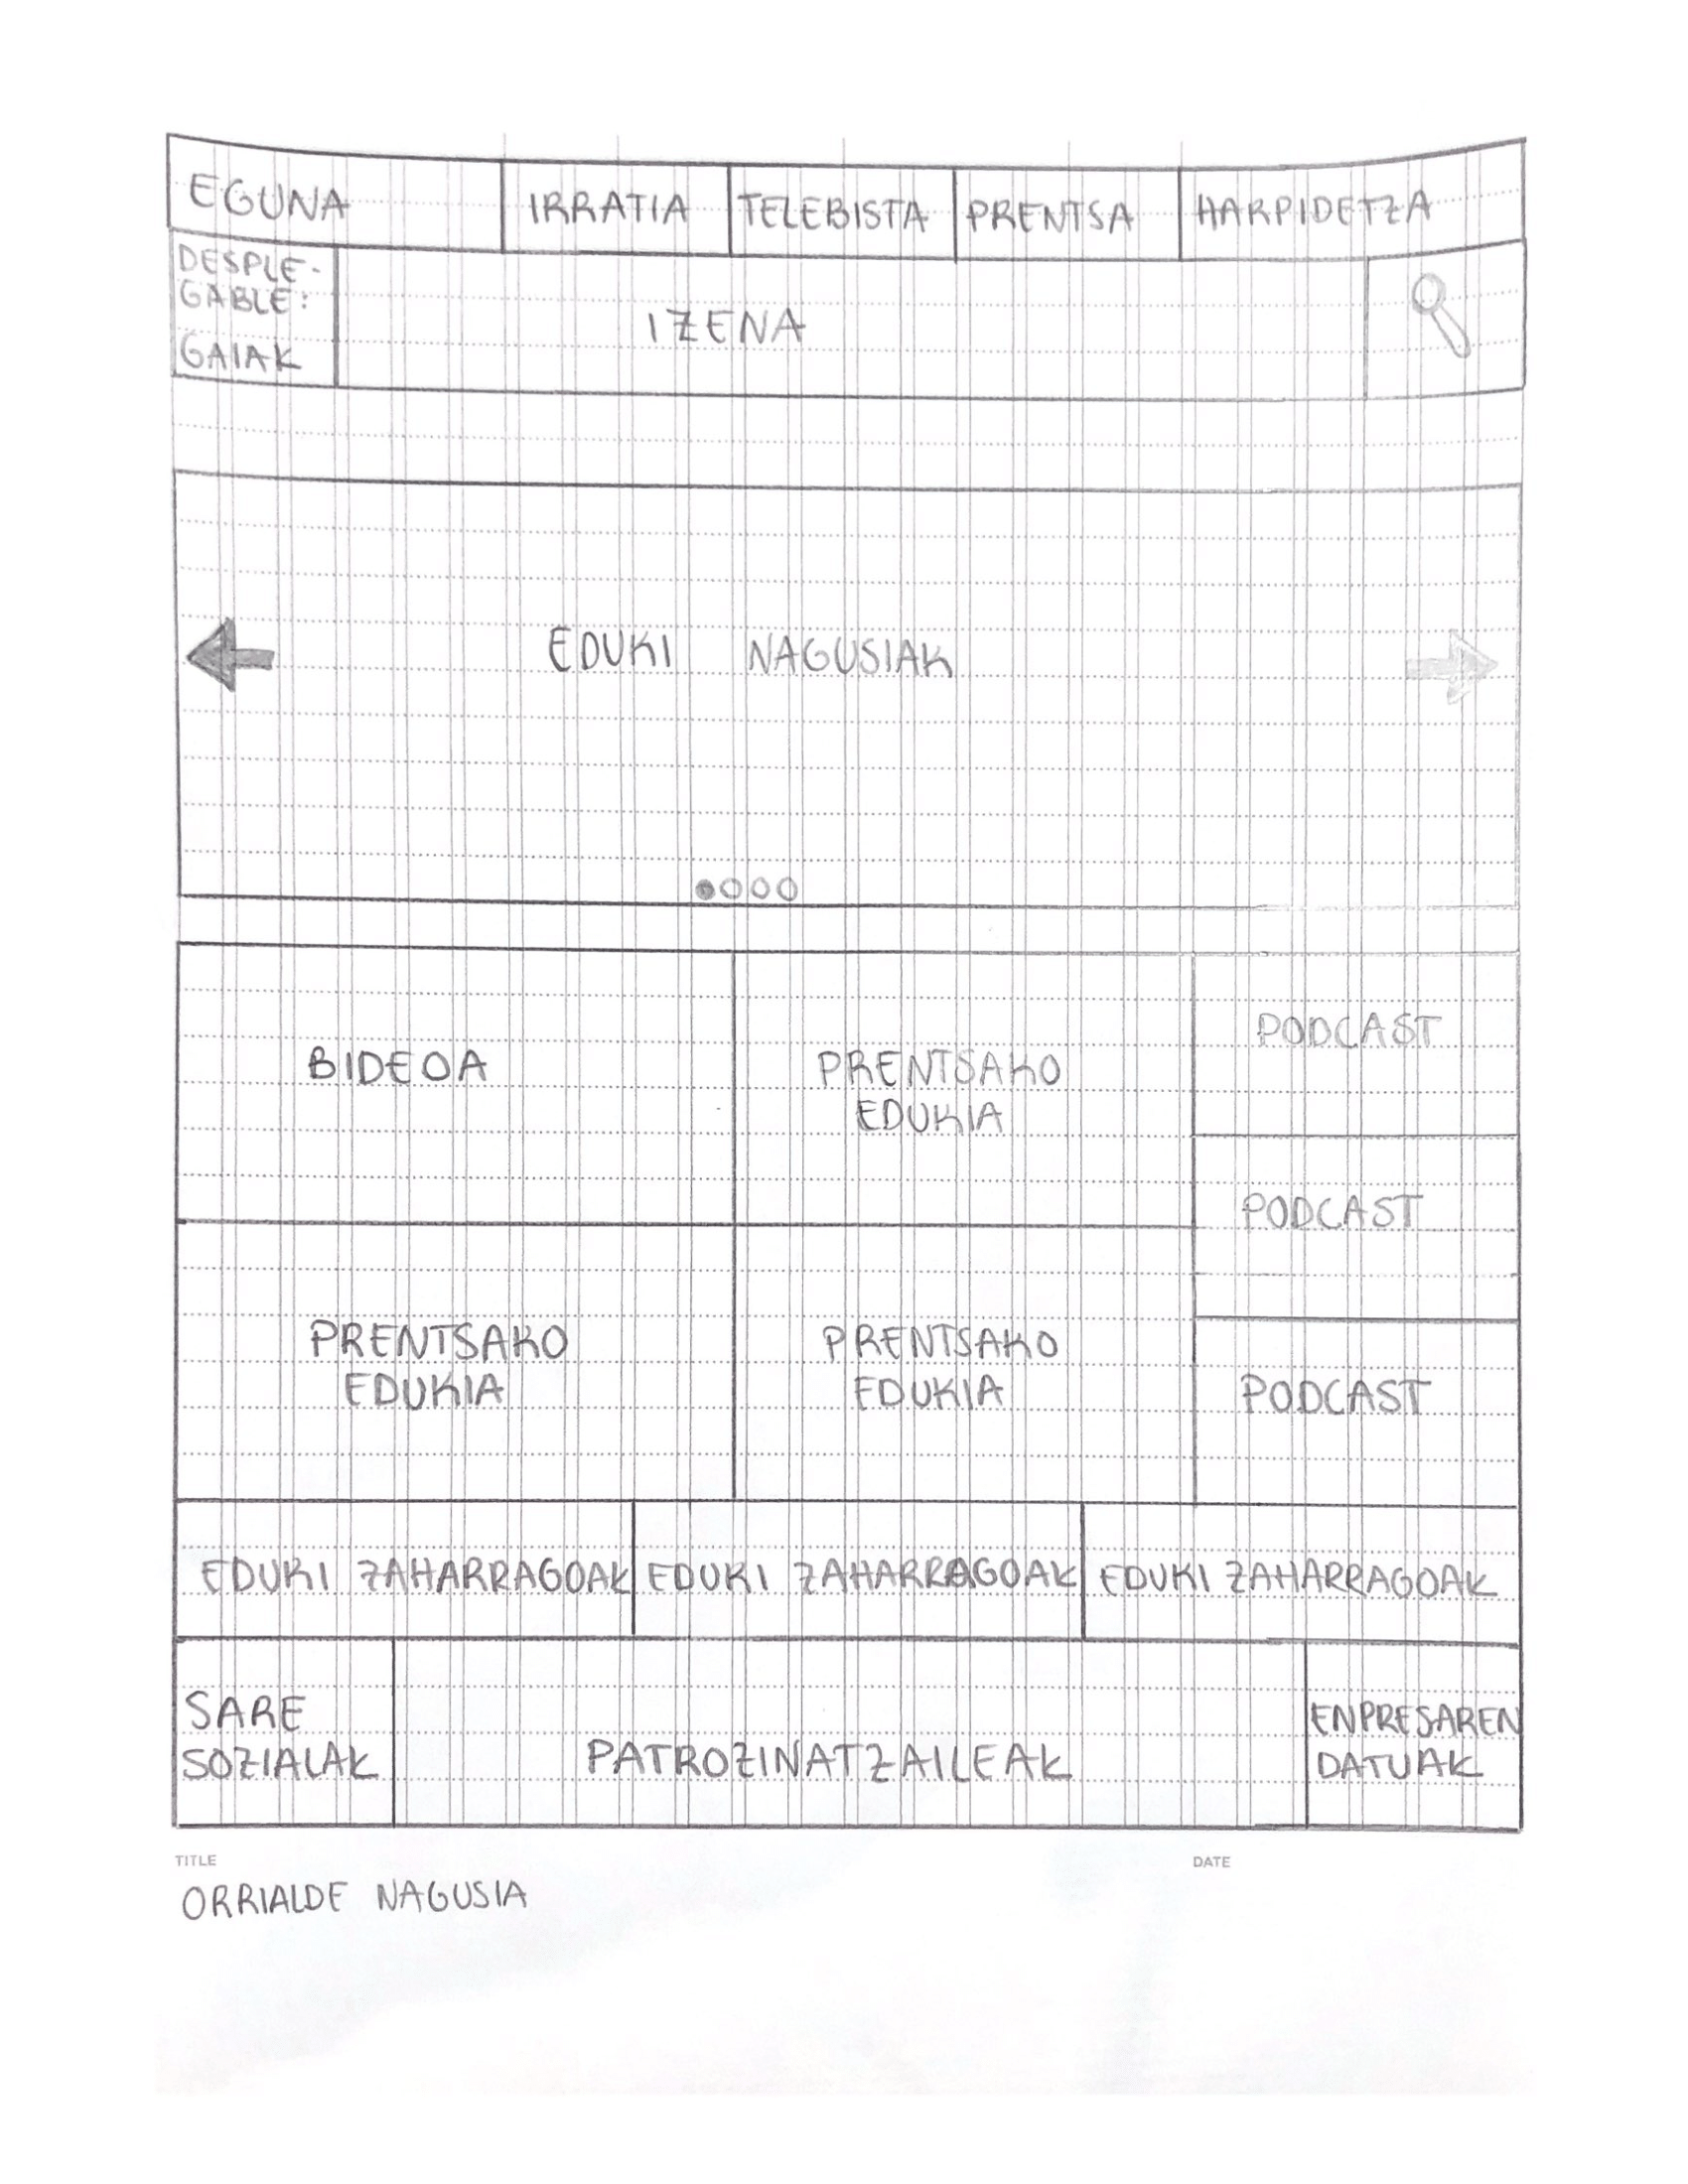 EGUNA
IRRATIA
TELEBISTA
PRENTSA
HARPIDETZA
DESPLE-
GABLE:
GAIAK
IZENA
EDUKI NAGUSIAK
BIDEOA
PRENTSAKO
EDUKIA
PODCAST
PODCAST
PRENTSAKO
EDUKIA
PRENTSAKO
EDUKIA
PODCAST
EDUKI ZAHARRAGOAK
EDUKI ZAHARRAGOAK
EDUKI ZAHARRAGOAK
SARE
SOZIALAK
PATROZINATZAILEAK
ENPRESAREN
DATUAK
TITLE
DATE
ORRIALDE NAGUSIA